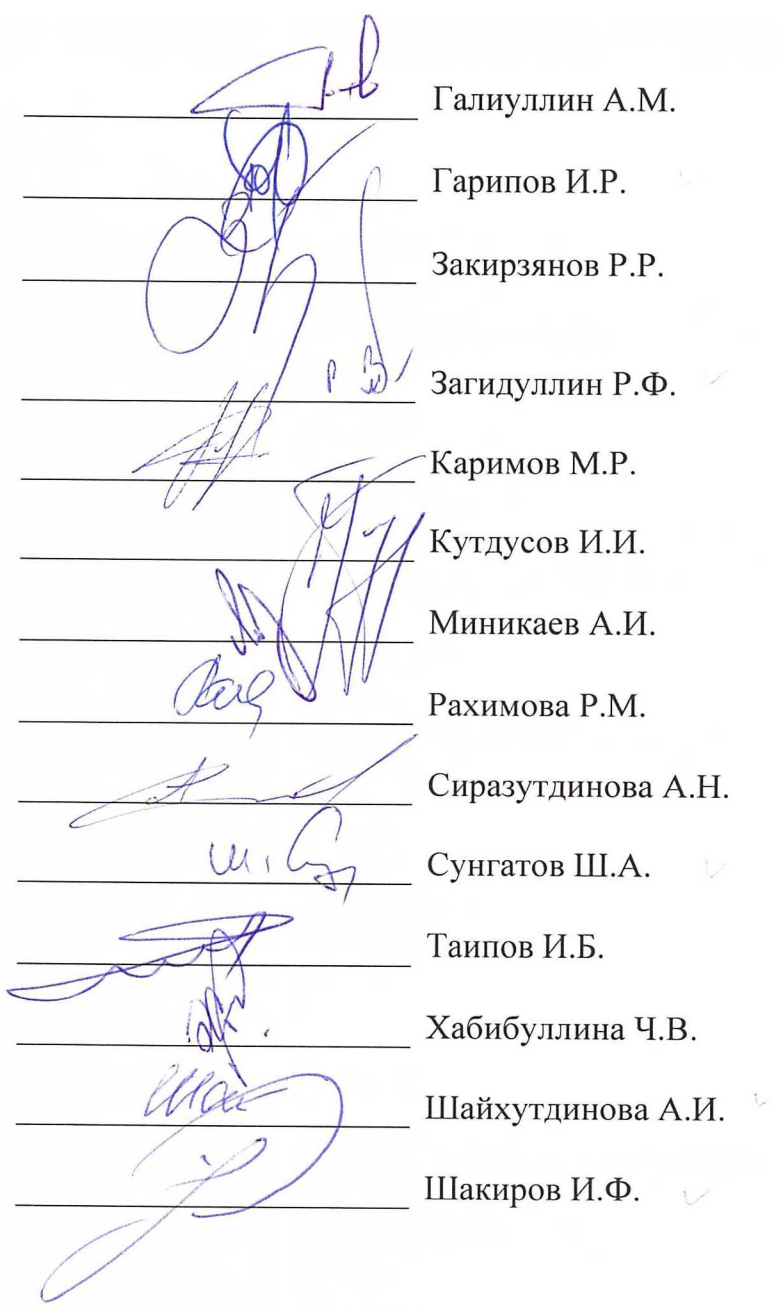 Галиуллин А.М.
Гарипов И.Р.
Закирзянов Р.Р.
Загидуллин Р.Ф.
Каримов М.Р.
Кутдусов И.И.
Миникаев А.И.
Рахимова Р.М.
Сиразутдинова А.Н.
Сунгатов Ш.А.
Таипов И.Б.
Хабибуллина Ч.В.
Шайхутдинова А.И.
Шакиров И.Ф.